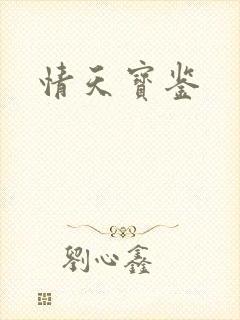 情天寳鉴
劉心鑫